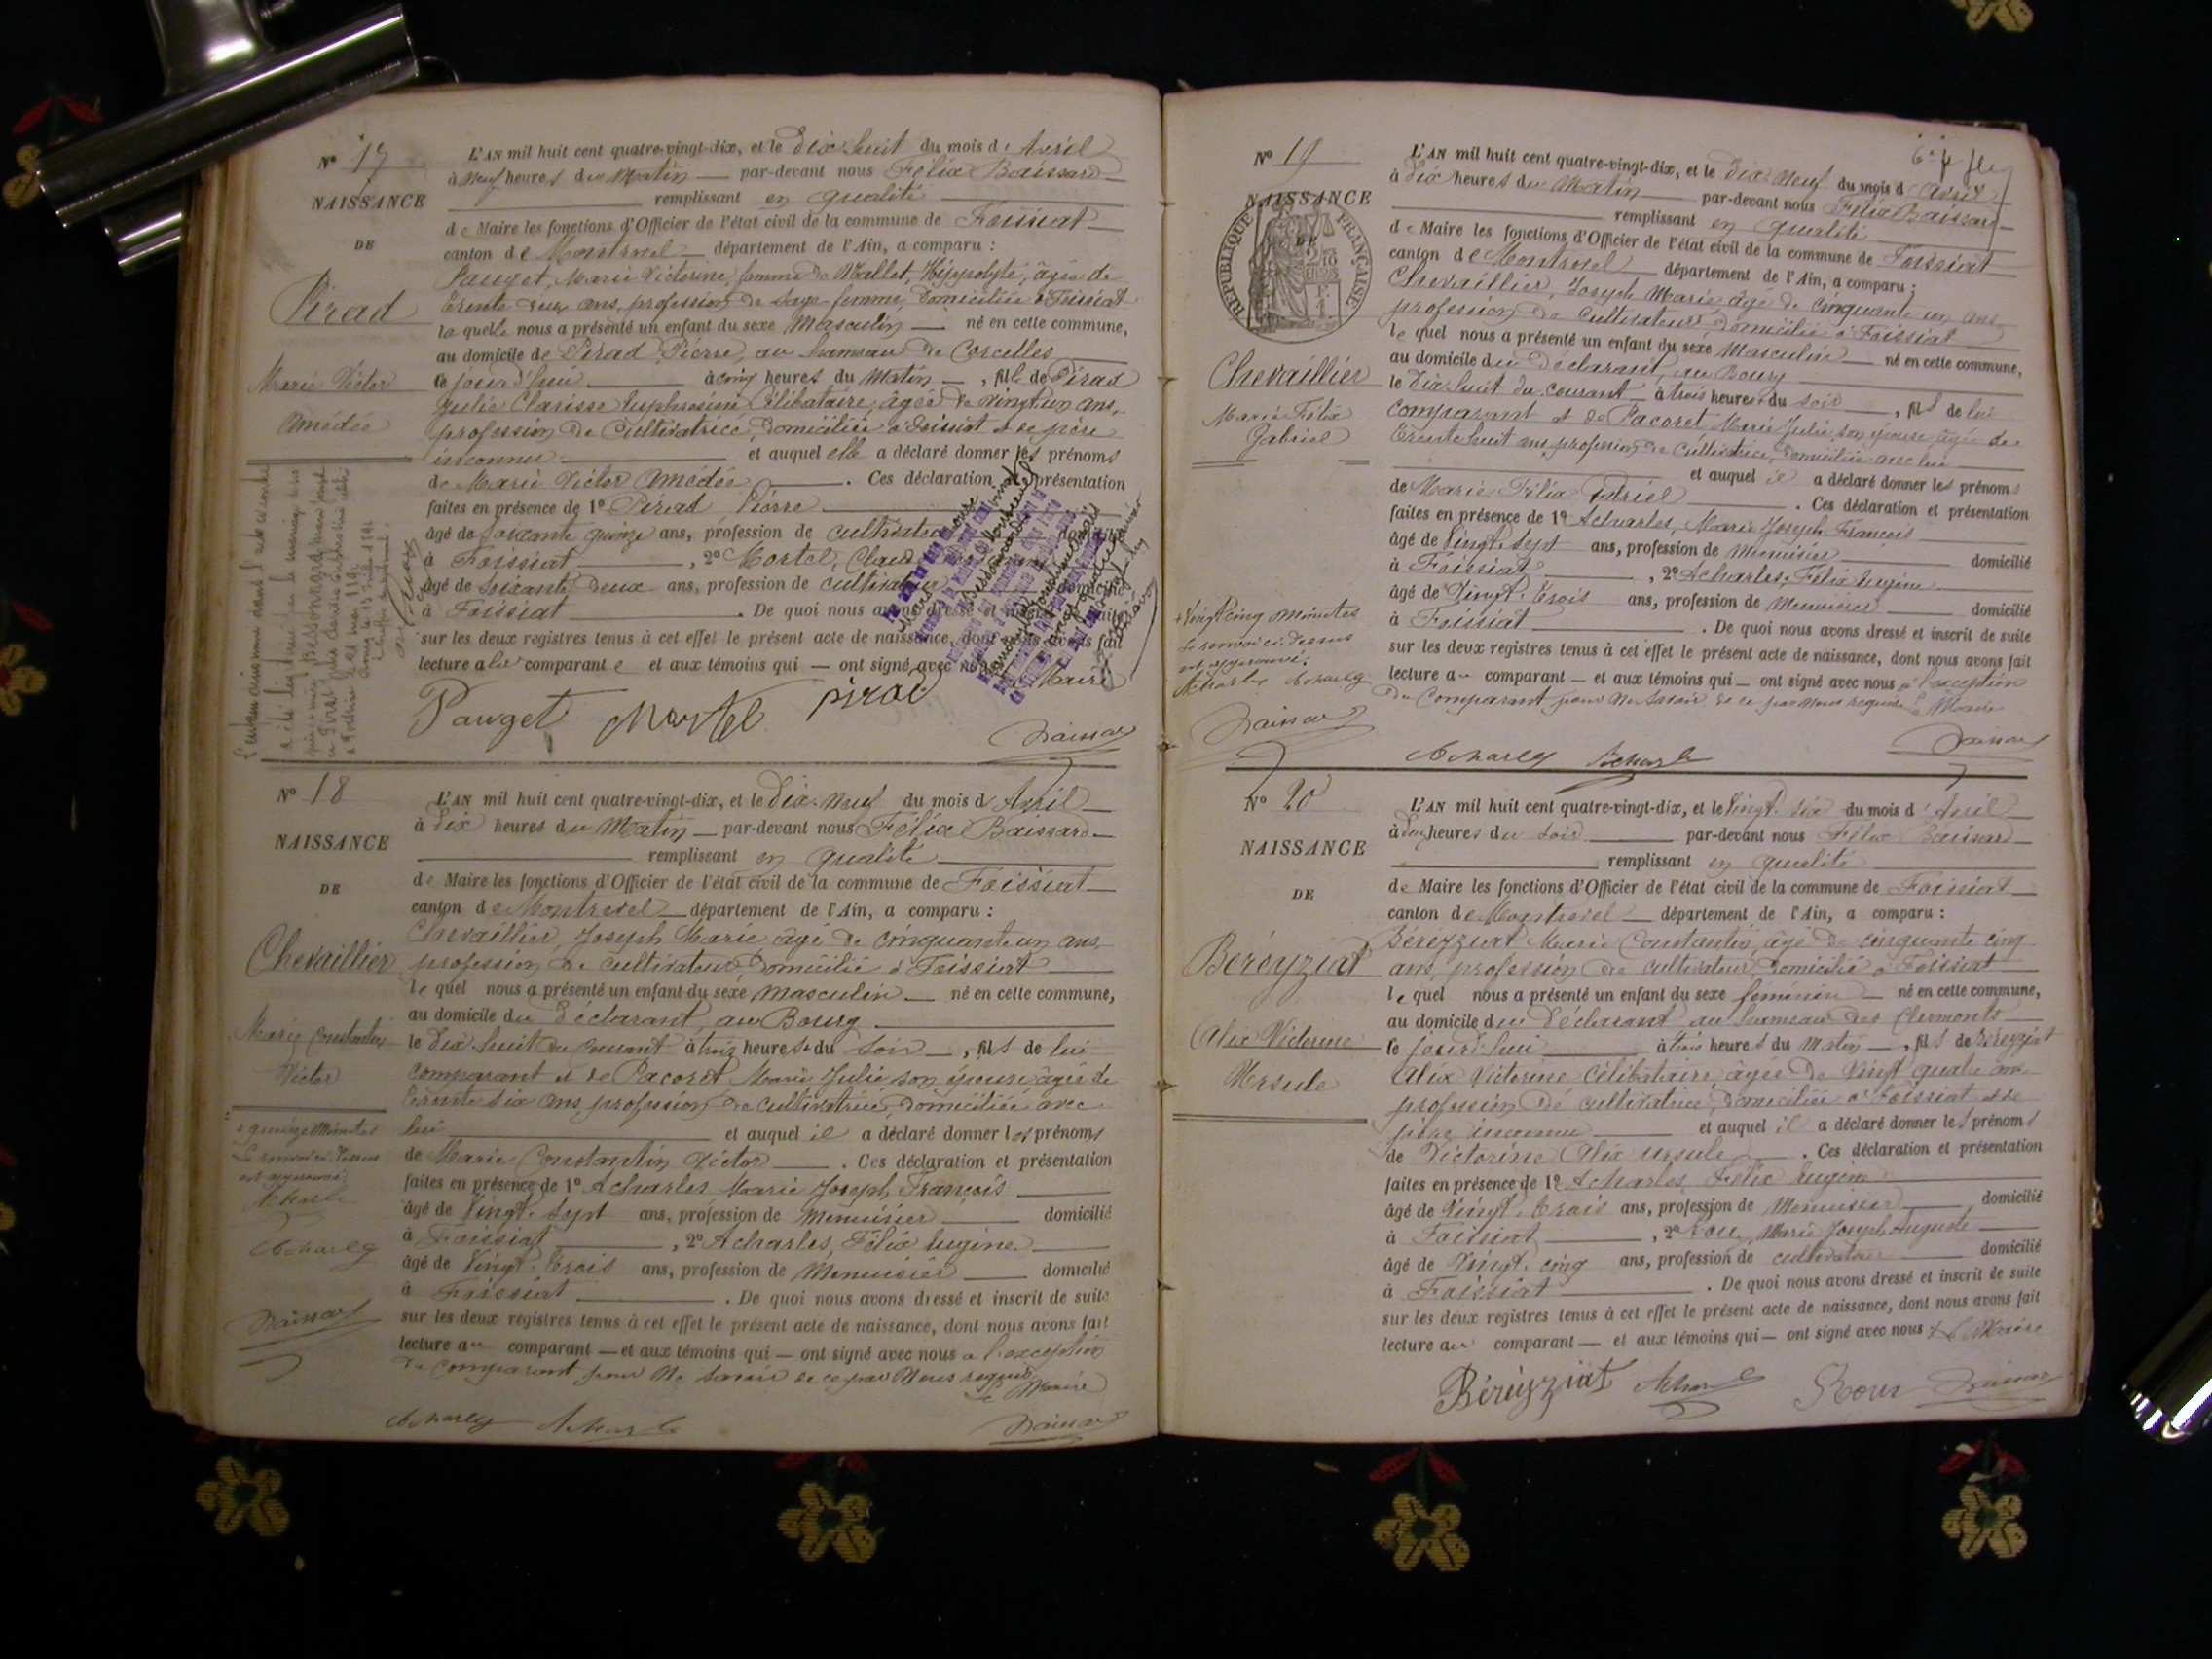 N° 17
NAISSANCE
DE
Pirad
Marie Victor
Amédée
L'AN mil huit cent quatre-vingt-dix, et le Dix huit du mois d'Avril
à Neuf heures du Matin par-devant nous Félix Baissard
remplissant en qualité
de Maire les fonctions d'Officier de l'état civil de la commune de Foissiat
canton de Montrevel département de l'Ain, a comparu :
Pauget, Marie Victorine, femme de Mallet, Hippolyte, âgée de
trente deux ans, profession de Sage-femme, domiciliée à Foissiat
laquelle nous a présenté un enfant du sexe Masculin né en cette commune,
au domicile de Pirad Pierre, au hameau de Corcelles
le jourd'hui à cinq heures du Matin, fils de Pirad
Julie Clarisse Euphrosine Célibataire, âgée de vingt un ans,
profession de Cultivatrice, domiciliée à Foissiat et de père
inconnu et auquel elle a déclaré donner les prénoms
de Marie Victor Amédée. Ces déclaration et présentation
faites en présence de 1° Pirad Pierre
âgé de soixante quinze ans, profession de cultivateur
à Foissiat, 2° Mortel, Claude
âgé de soixante deux ans, profession de cultivateur domicilié
à Foissiat. De quoi nous avons dressé
sur les deux registres tenus à cet effet le présent acte de naissance, dont nous avons fait
lecture à la comparante et aux témoins qui ont signé avec nous
Maire
Pauget Mortel Pirad
Baissard
N° 18
NAISSANCE
DE
Chevaillier
Marie Constantin
Victor
+ quinze Minutes
Le renvoi ci-dessus
est approuvé
Acharles
Acharles
Baissard
L'AN mil huit cent quatre-vingt-dix, et le Dix-Neuf du mois d'Avril
à Dix heures du Matin par-devant nous Félix Baissard
remplissant en qualité
de Maire les fonctions d'Officier de l'état civil de la commune de Foissiat
canton de Montrevel département de l'Ain, a comparu :
Chevaillier, Joseph Marie âgé de cinquante un ans,
profession de cultivateur domicilié à Foissiat
lequel nous a présenté un enfant du sexe Masculin né en cette commune,
au domicile du Déclarant, au Bourg
le Dix huit du Courant à trois heures + du soir, fils de lui
comparant et de Pacoret Marie Julie son épouse âgée de
trente six ans, profession de cultivatrice, domiciliée avec
lui et auquel il a déclaré donner les prénoms
de Marie Constantin Victor. Ces déclaration et présentation
faites en présence de 1° Acharles Marie Joseph François
âgé de Vingt-Sept ans, profession de Menuisier domicilié
à Foissiat, 2° Acharles, Félix Eugène
âgé de Vingt-trois ans, profession de Menuisier domicilié
à Foissiat. De quoi nous avons dressé et inscrit de suite
sur les deux registres tenus à cet effet le présent acte de naissance, dont nous avons fait
lecture au comparant et aux témoins qui ont signé avec nous à l'exception
du Comparant pour Ne Savoir de ce par Nous requis
Le Maire
Acharles Acharles Baissard
N° 19
NAISSANCE
DE
RÉPUBLIQUE FRANÇAISE
Chevaillier
Marie Félix
Gabriel
+ Vingt cinq minutes
Le renvoi ci-dessus
est approuvé.
Acharles Acharles
Baissard
L'AN mil huit cent quatre-vingt-dix, et le Dix Neuf du mois d'avril
à Dix heures du Matin par-devant nous Félix Baissard
remplissant en qualité
de Maire les fonctions d'Officier de l'état civil de la commune de Foissiat
canton de Montrevel département de l'Ain, a comparu :
Chevaillier, Joseph Marie âgé de cinquante un ans
profession de Cultivateur domicilié à Foissiat
lequel nous a présenté un enfant du sexe Masculin né en cette commune,
au domicile du Déclarant, au Bourg
le Dix huit du courant à trois heures + du soir, fils de lui
comparant et de Pacoret Marie Julie, son épouse âgée de
trente huit ans, profession de Cultivatrice, domiciliée avec lui
et auquel il a déclaré donner les prénoms
de Marie Félix Gabriel. Ces déclaration et présentation
faites en présence de 1° Acharles, Marie Joseph François
âgé de Vingt-Sept ans, profession de Menuisier domicilié
à Foissiat, 2° Acharles, Félix Eugène
âgé de Vingt-trois ans, profession de Menuisier domicilié
à Foissiat. De quoi nous avons dressé et inscrit de suite
sur les deux registres tenus à cet effet le présent acte de naissance, dont nous avons fait
lecture au comparant et aux témoins qui ont signé avec nous à l'exception
du Comparant pour Ne Savoir de ce par Nous requis Le Maire
Acharles Acharles Baissard
N° 20
NAISSANCE
DE
Béréyziat
Alix Victorine
Ursule
L'AN mil huit cent quatre-vingt-dix, et le Vingt-six du mois d'Avril
à heures du soir par-devant nous Félix Baissard
remplissant en qualité
de Maire les fonctions d'Officier de l'état civil de la commune de Foissiat
canton de Montrevel département de l'Ain, a comparu :
Béréyziat Marie Constantin, âgé de cinquante cinq
ans, profession de cultivateur, domicilié à Foissiat
lequel nous a présenté un enfant du sexe féminin né en cette commune,
au domicile du Déclarant au hameau des Clermonts
le jourd'hui à trois heures du Matin, fils de Béréyziat
Alix Victorine Célibataire âgée de Vingt quatre ans
profession de cultivatrice, domiciliée à Foissiat et de
père inconnu et auquel il a déclaré donner les prénoms
de Victorine Alix Ursule. Ces déclaration et présentation
faites en présence de 1° Acharles, Félix Eugène
âgé de Vingt-trois ans, profession de Menuisier domicilié
à Foissiat, 2° Marie Joseph Auguste
âgé de Vingt-cinq ans, profession de cultivateur domicilié
à Foissiat. De quoi nous avons dressé et inscrit de suite
sur les deux registres tenus à cet effet le présent acte de naissance, dont nous avons fait
lecture au comparant et aux témoins qui ont signé avec nous Le Maire
Béréyziat Acharles Baissard